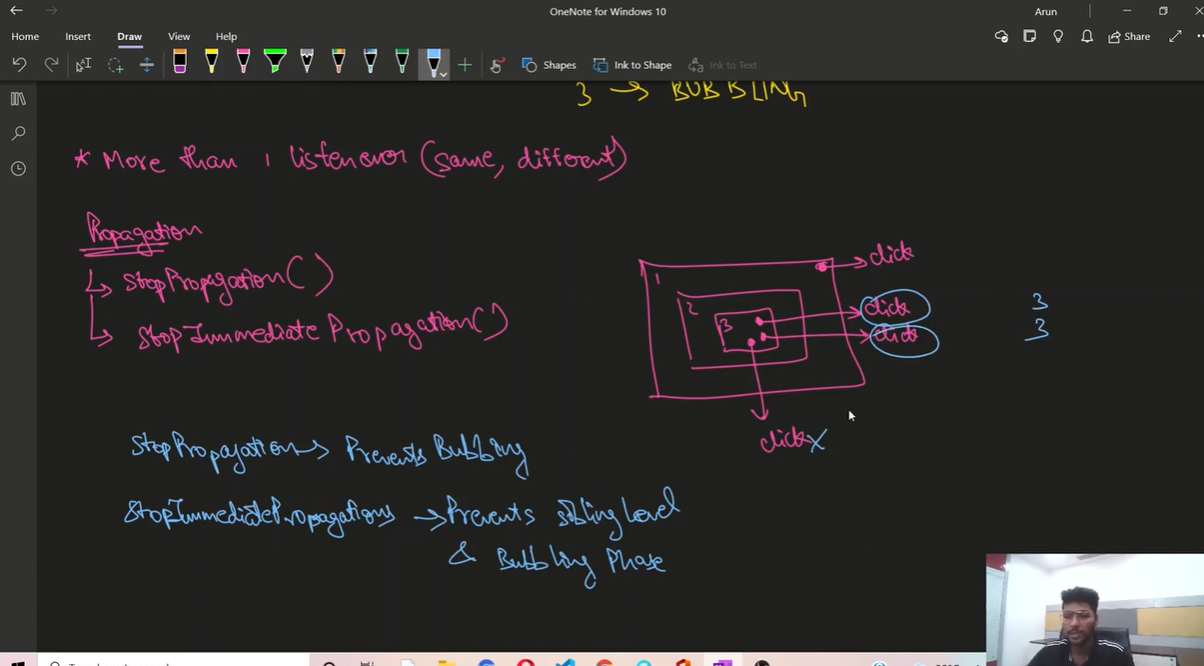 OneNote for Windows 10
Arun
Home Insert Draw View Help
Share
Shapes
Ink to Shape
Ink to Text
3 → BUBBLING
* More than 1 listenever (same, different)
Propagation
↳ stopPropagation()
↳ stopImmediatePropagation()
click
1
2
3
click
click
click X
3
3
StopPropagation → Prevents Bubbling
StopImmediatePropagations → Prevents sibling Level
& Bubbling Phase